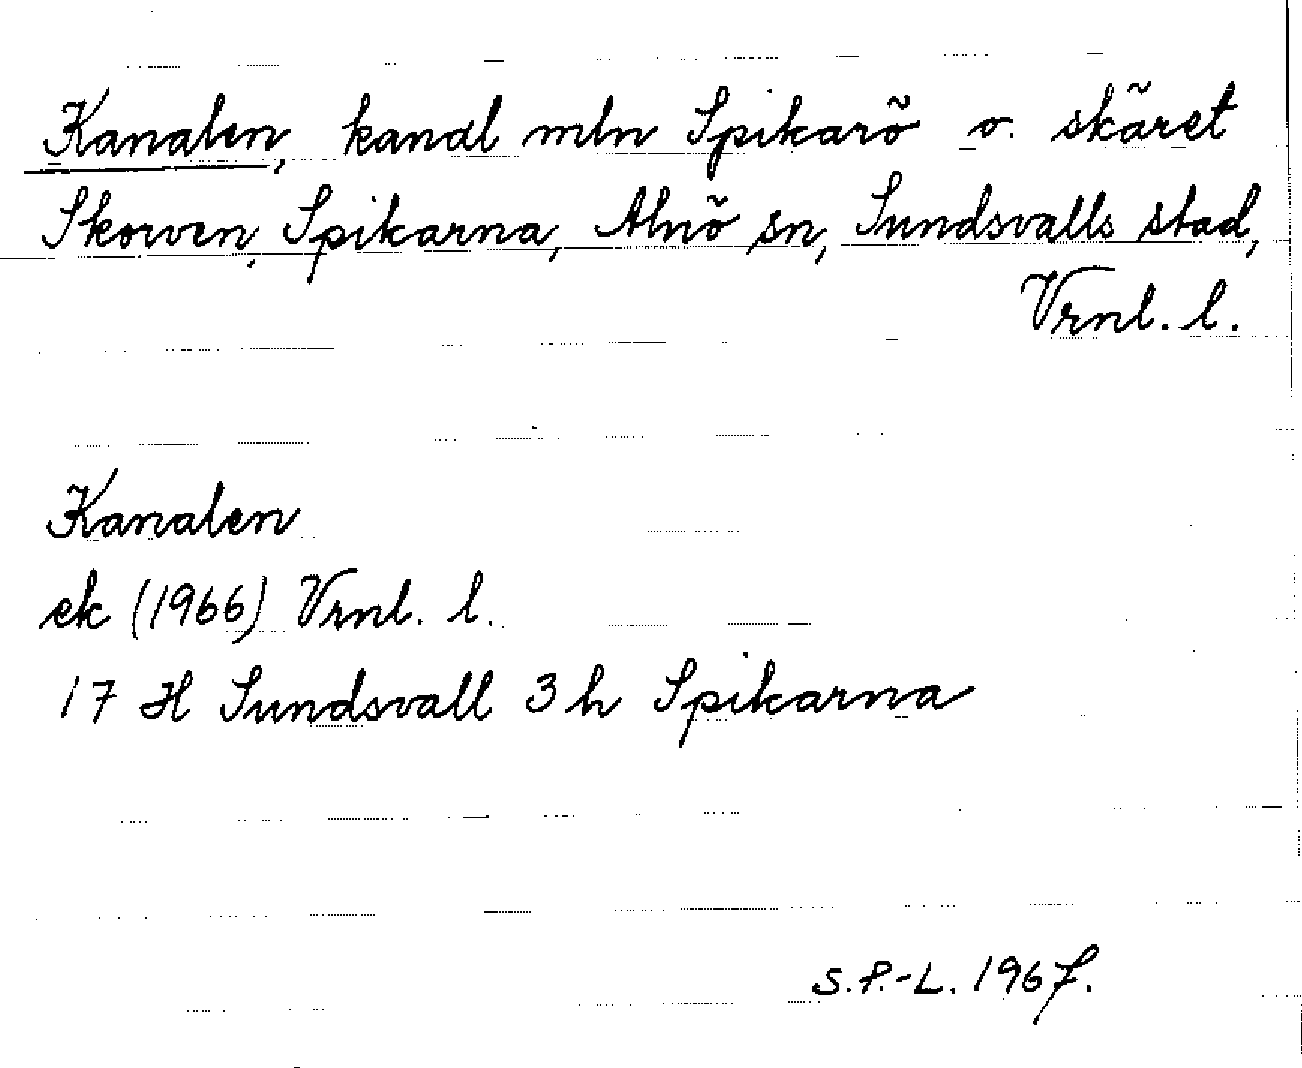 Kanalen, kandl mln Spikarö o. skäret
Skorven, Spikarna, Alnö sn, Sundsvalls stad,
Vrnl. l.
Kanalen
ek (1966) Vrnl. l.
17 H Sundsvall 3h Spikarna
S.P.-L. 1967.